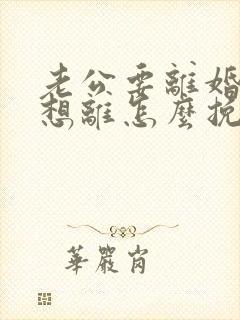 老公要離婚
想離怎麼挽
華嚴肖